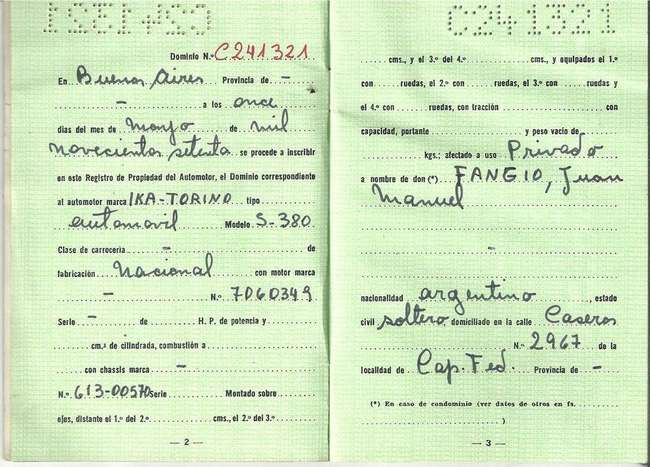 Dominio N.º C241321
En Buenos Aires Provincia de -
- a los once
días del mes de mayo de mil
novecientos setenta se procede a inscribir
en este Registro de Propiedad del Automotor, el Dominio correspondiente
al automotor marca IKA-TORINO tipo
automovil Modelo S-380
Clase de carrocería - de
fabricación Nacional con motor marca
- N.º 7060349
Serie - de H. P. de potencia y
cm.³ de cilindrada, combustión a
con chassis marca -
N.º 613-00570 Serie Montado sobre
ejes, distante el 1.º del 2.º cms., el 2.º del 3.º
— 2 —
C241321
cms., y el 3.º del 4.º cms., y equipados el 1.º
con ruedas, el 2.º con ruedas, el 3.º con ruedas y
el 4.º con ruedas, con tracción con
capacidad, portante y peso vacío de
kgs.; afectado a uso Privado
a nombre de don (*) FANGIO, Juan
Manuel
-
nacionalidad argentino, estado
civil soltero domiciliado en la calle Caseros
N.º 2967 de la
localidad de Cap. Fed. Provincia de -
(*) En caso de condominio (ver datos de otros en fs.
)
— 3 —